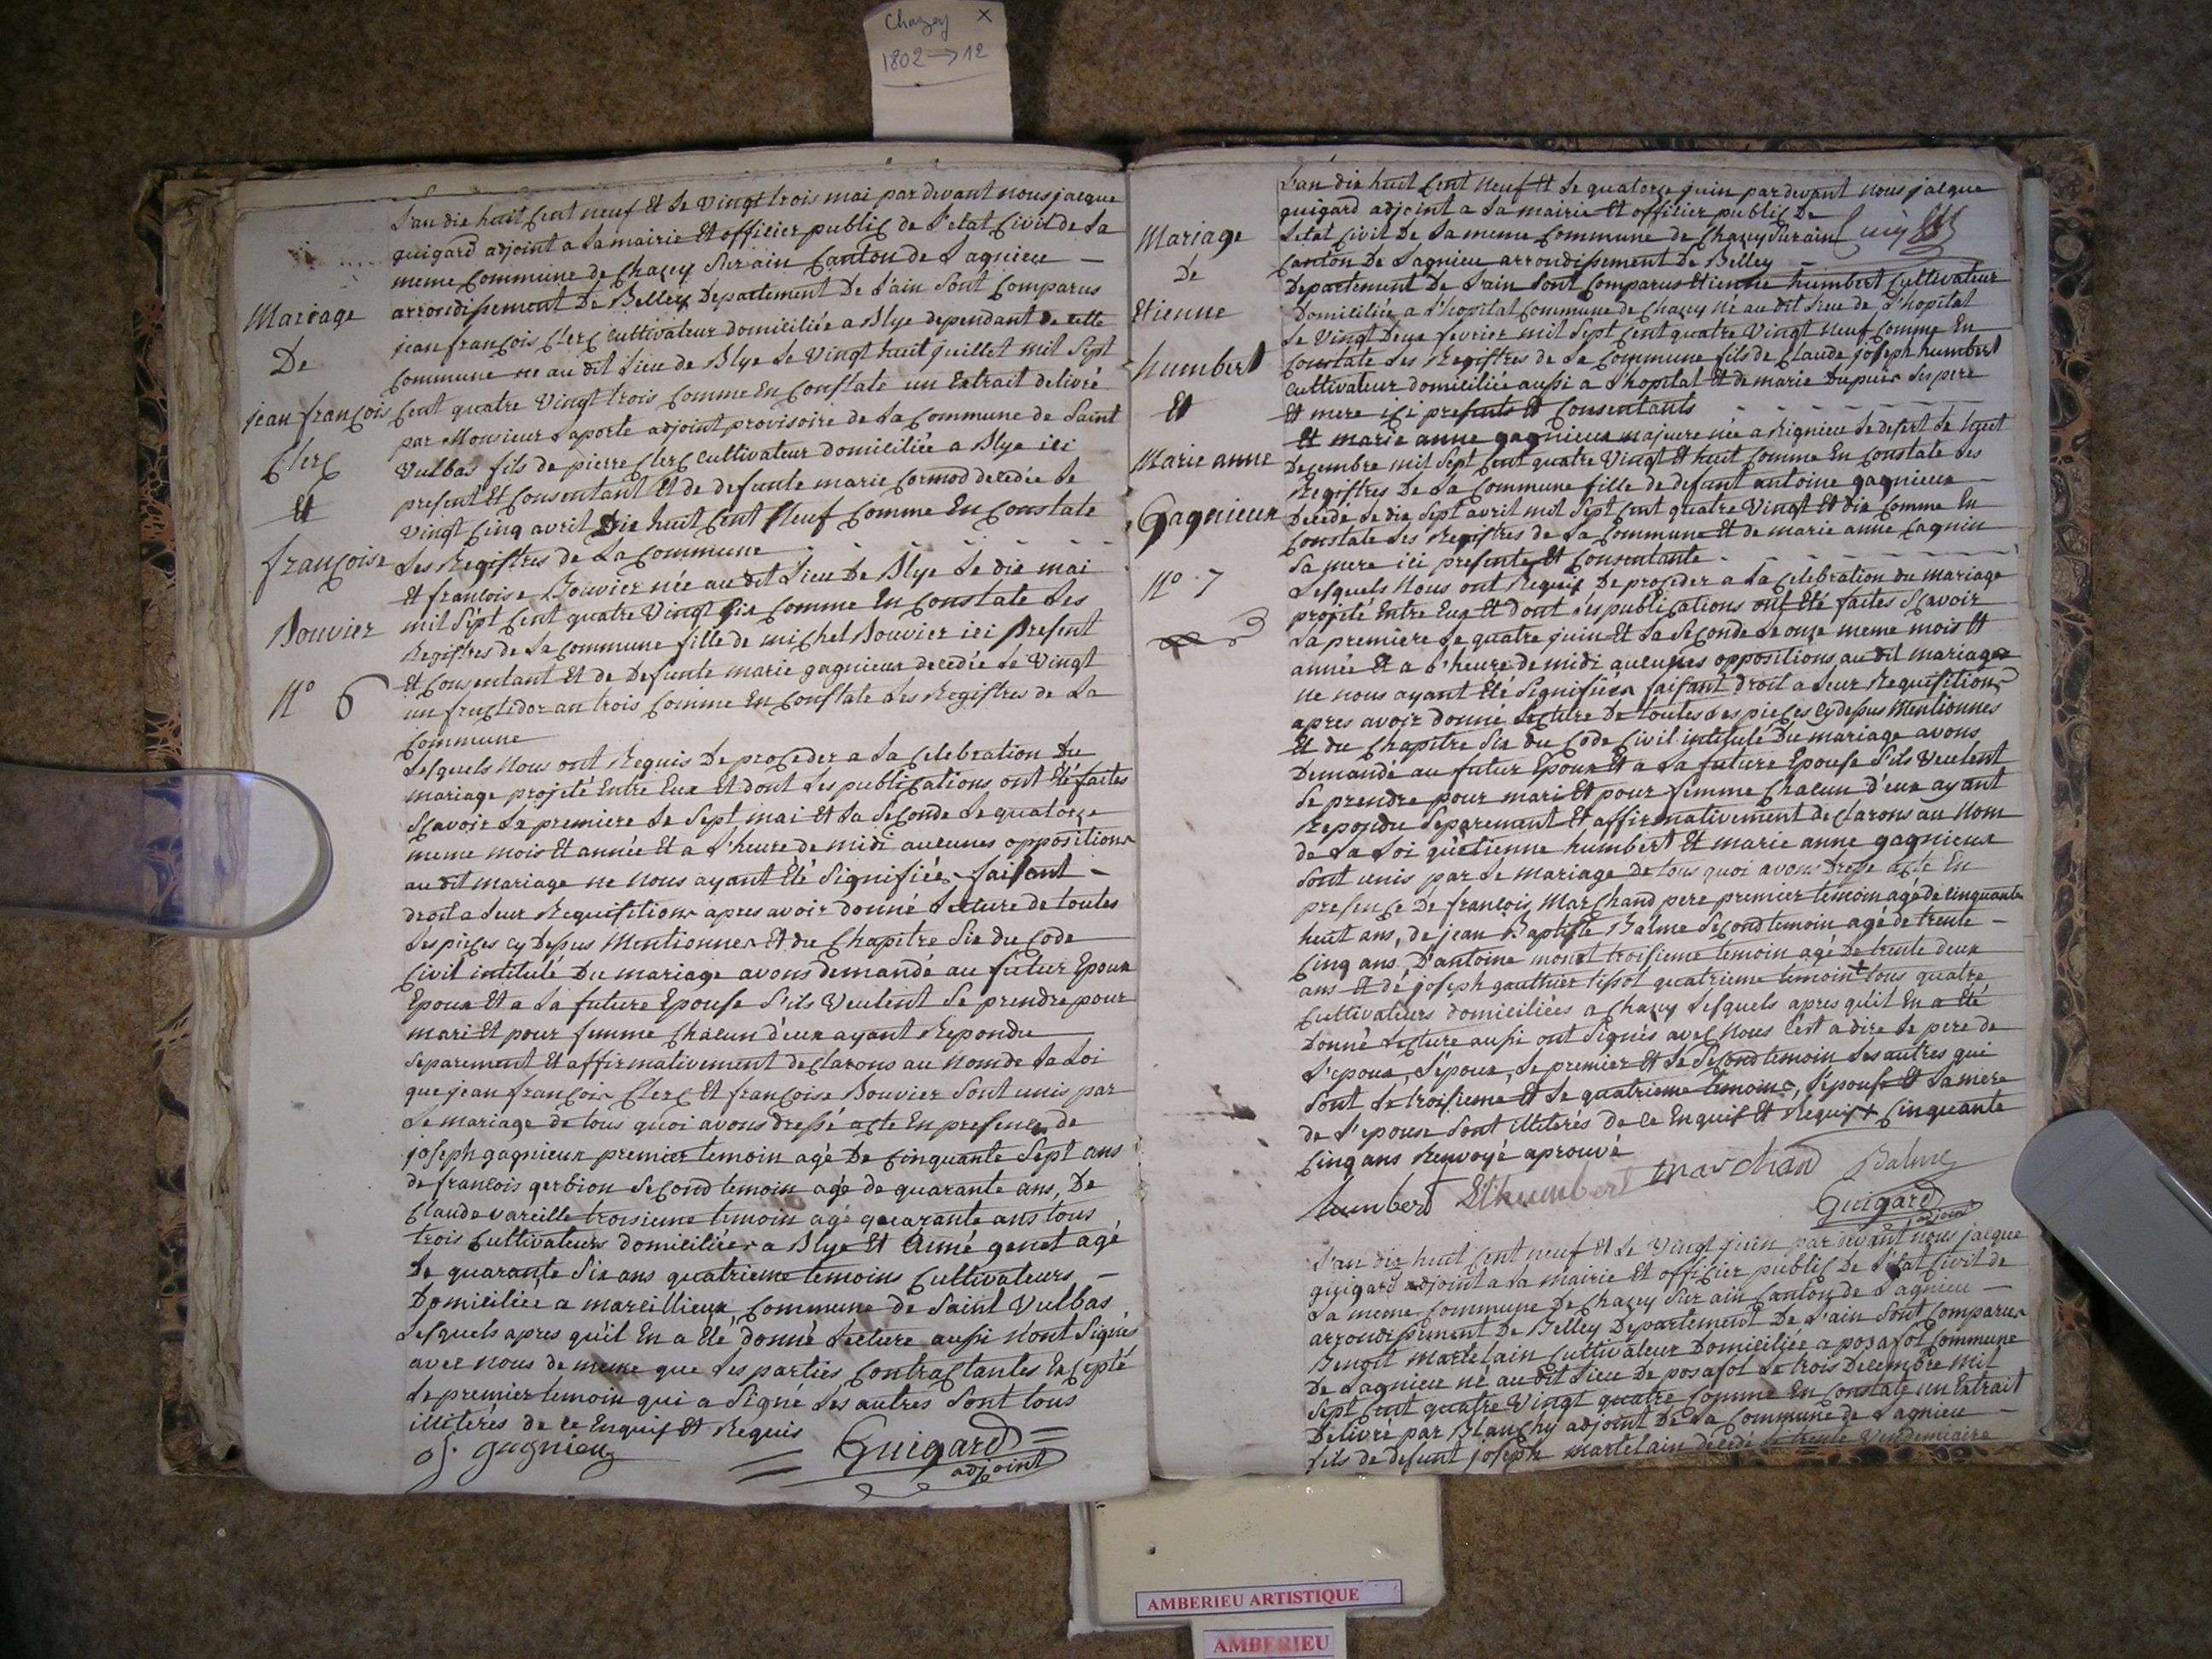 Chazey X
1802 → 12
L'an dix huit Cent neuf Et le Vingt trois mai par devant nous jacque
guigard adjoint a la mairie Et officier public de l'etat Civil de la
meme Commune de Chazey Sur ain Canton de Lagnieu —
arrondissement De Belley Departement De l'ain Sont Comparus
jean françois Clerc Cultivateur domiciliée a Blye dependant de cette
Commune né au dit Lieu de Blye le Vingt huit juillet mil Sept
Cent quatre Vingt trois Comme En Constate un Extrait delivré
par Monsieur Laporte adjoint provisoire de la Commune de Saint
Vulbas fils de pierre Clerc cultivateur domiciliée a Blye ici
present Et Consentant Et de defunte marie Cormod decedée le
Vingt Cinq avril Dix huit Cent Neuf Comme En Constate
Les Registres de La Commune
Et francoise Bouvier née au dit Lieu De Blye Le dix mai
mil Sept Cent quatre Vingt Six Comme En Constate Les
Registres de La Commune fille de michel Bouvier ici Present
Et Consentant Et de Defunte marie gagnieux decedée le Vingt
un fructidor an trois Comme En Constate Les Registres de La
Commune
Lesquels Nous ont Requis De proceder a La Celebration Du
mariage projeté Entre Eux Et dont Les publications ont Eté faites
Scavoir La premiere Le Sept mai Et La Seconde Le quatorze
meme mois Et année Et a L'heure de midi aucunes oppositions
au dit mariage ne nous ayant Eté Signifiées faisant –
droit a Leur Requisitions apres avoir donné Lecture de toutes
Les pieces cy Dessus Mentionnes Et du Chapitre Six du Code
Civil intitulé Du mariage avons demandé au futur Epoux
Epoux Et a La future Epouse S'ils Veulent Se prendre pour
mari Et pour femme Chacun d'eux ayant Repondu
Separement Et affirmativement declarons au Nom de La Loi
que jean françois Clerc Et françoise Bouvier Sont unis par
Le mariage de tous quoi avons dressé acte En presence de
joseph gagnieux premier temoin agé De Cinquante Sept ans
de francois gerbion Second temoin agé de quarante ans, De
Claude vareille troisieme temoin agé quarante ans tous
trois Cultivateurs domiciliées a Blye Et Aimé genet agé
De quarante Six ans quatrieme temoins Cultivateurs –
Domiciliée a marcillieux Commune de Saint Vulbas
Lesquels apres qu'il En a Eté donné Lecture aussi N'ont Signés
avec nous de meme que Les parties Contractantes Excepté
Le premier temoin qui a Signé Les autres Sont tous
illiterés de ce Enquis Et Requis
j. gagnieu
Guigard
adjoint
Mariage
De
jean françois
Clerc
Et
françoise
Bouvier
N° 6
L'an dix huit Cent Neuf Et Le quatorze juin par devant nous jacque
guigard adjoint a La mairie Et officier public De
L'etat Civil De La meme Commune de Chazey Sur ain
Canton De Lagnieu arrondissement De Belley
Departement De L'ain Sont Comparus Etienne humbert Cultivateur
Domiciliée a L'hopital Commune de Chazey Né au dit Lieu de L'hopital
Le Vingt Deux fevrier mil Sept Cent quatre Vingt Neuf Comme En
Constate Les Registres de La Commune fils de Claude joseph humbert
Cultivateur domiciliée aussi a L'hopital Et de marie Dupuis Ses pere
Et mere ici presents Et Consentants
Et marie anne gagnieux majeure née a Rignieu Le desert Le huit
Decembre mil Sept Cent quatre Vingt Et huit Comme En Constate Les
Registres De La Commune fille de defunt antoine gagnieux –
Decedé Le dix Sept avril mil Sept Cent quatre Vingt Et dix Comme En
Constate Les Registres de La Commune Et de marie anne Cagnin
Sa mere ici presente Et Consentante
Lesquels Nous ont Requis De proceder a La Celebration du mariage
projeté Entre Eux Et dont Les publications ont Eté faites Scavoir
La premiere Le quatre juin Et La Seconde Le onze meme mois Et
année Et a L'heure de midi aucunes oppositions au dit mariage
ne nous ayant Eté Signifiées faisant droit a Leur Requisitions
apres avoir donné Lecture De toutes Les pieces Cy dessus Mentionnes
Et du Chapitre Six du Code Civil intitulé Du mariage avons
Demandé au futur Epoux Et a La future Epouse S'ils Veulent
Se prendre pour mari Et pour femme Chacun d'eux ayant
Repondu Separement Et affirmativement declarons au Nom
de La Loi qu'etienne humbert Et marie anne gagnieux
Sont unis par Le mariage De tous quoi avons Dressé acte En
presence De francois Marchand pere premier temoin agé de Cinquante
huit ans, de jean Baptiste Balme Second temoin agé de trente –
Cinq ans D'antoine monet troisieme temoin agé De trente deux
ans Et de joseph gauthier tissot quatrieme temoin + tous quatre
Cultivateurs domiciliées a Chazey Lesquels apres qu'il En a Eté
Donné Lecture aussi ont Signés avec Nous C'est a dire Le pere de
L'epoux, L'epoux, Le premier Et Le Second temoin Les autres qui
Sont Le troisieme Et Le quatrieme temoins, L'epouse Et La mere
de L'epouse Sont illiterés de ce Enquis Et Requis + Cinquante
Cinq ans Renvoyé aprouvé
humbert Ethumbert marchand Balme
Guigard
adjoint
L'an dix huit Cent neuf Et Le Vingt juin par devant nous jacque
guigard adjoint a La mairie Et officier public De L'etat Civil de
La meme Commune De Chazey Sur ain Canton de Lagnieu –
arrondissement De Belley Departement De L'ain Sont Comparus
Benoit martelain Cultivateur Domiciliée a posafol Commune
De Lagnieu né au dit Lieu De posafol Le trois Decembre mil
Sept Cent quatre Vingt quatre Comme En Constate un Extrait
Delivré par Blanchy adjoint De La Commune de Lagnieu –
fils de defunt joseph martelain decedé Le trente Vendemiaire
Mariage
De
Etienne
humbert
Et
Marie anne
Gagnieux
N° 7
AMBERIEU ARTISTIQUE
AMBERIEU